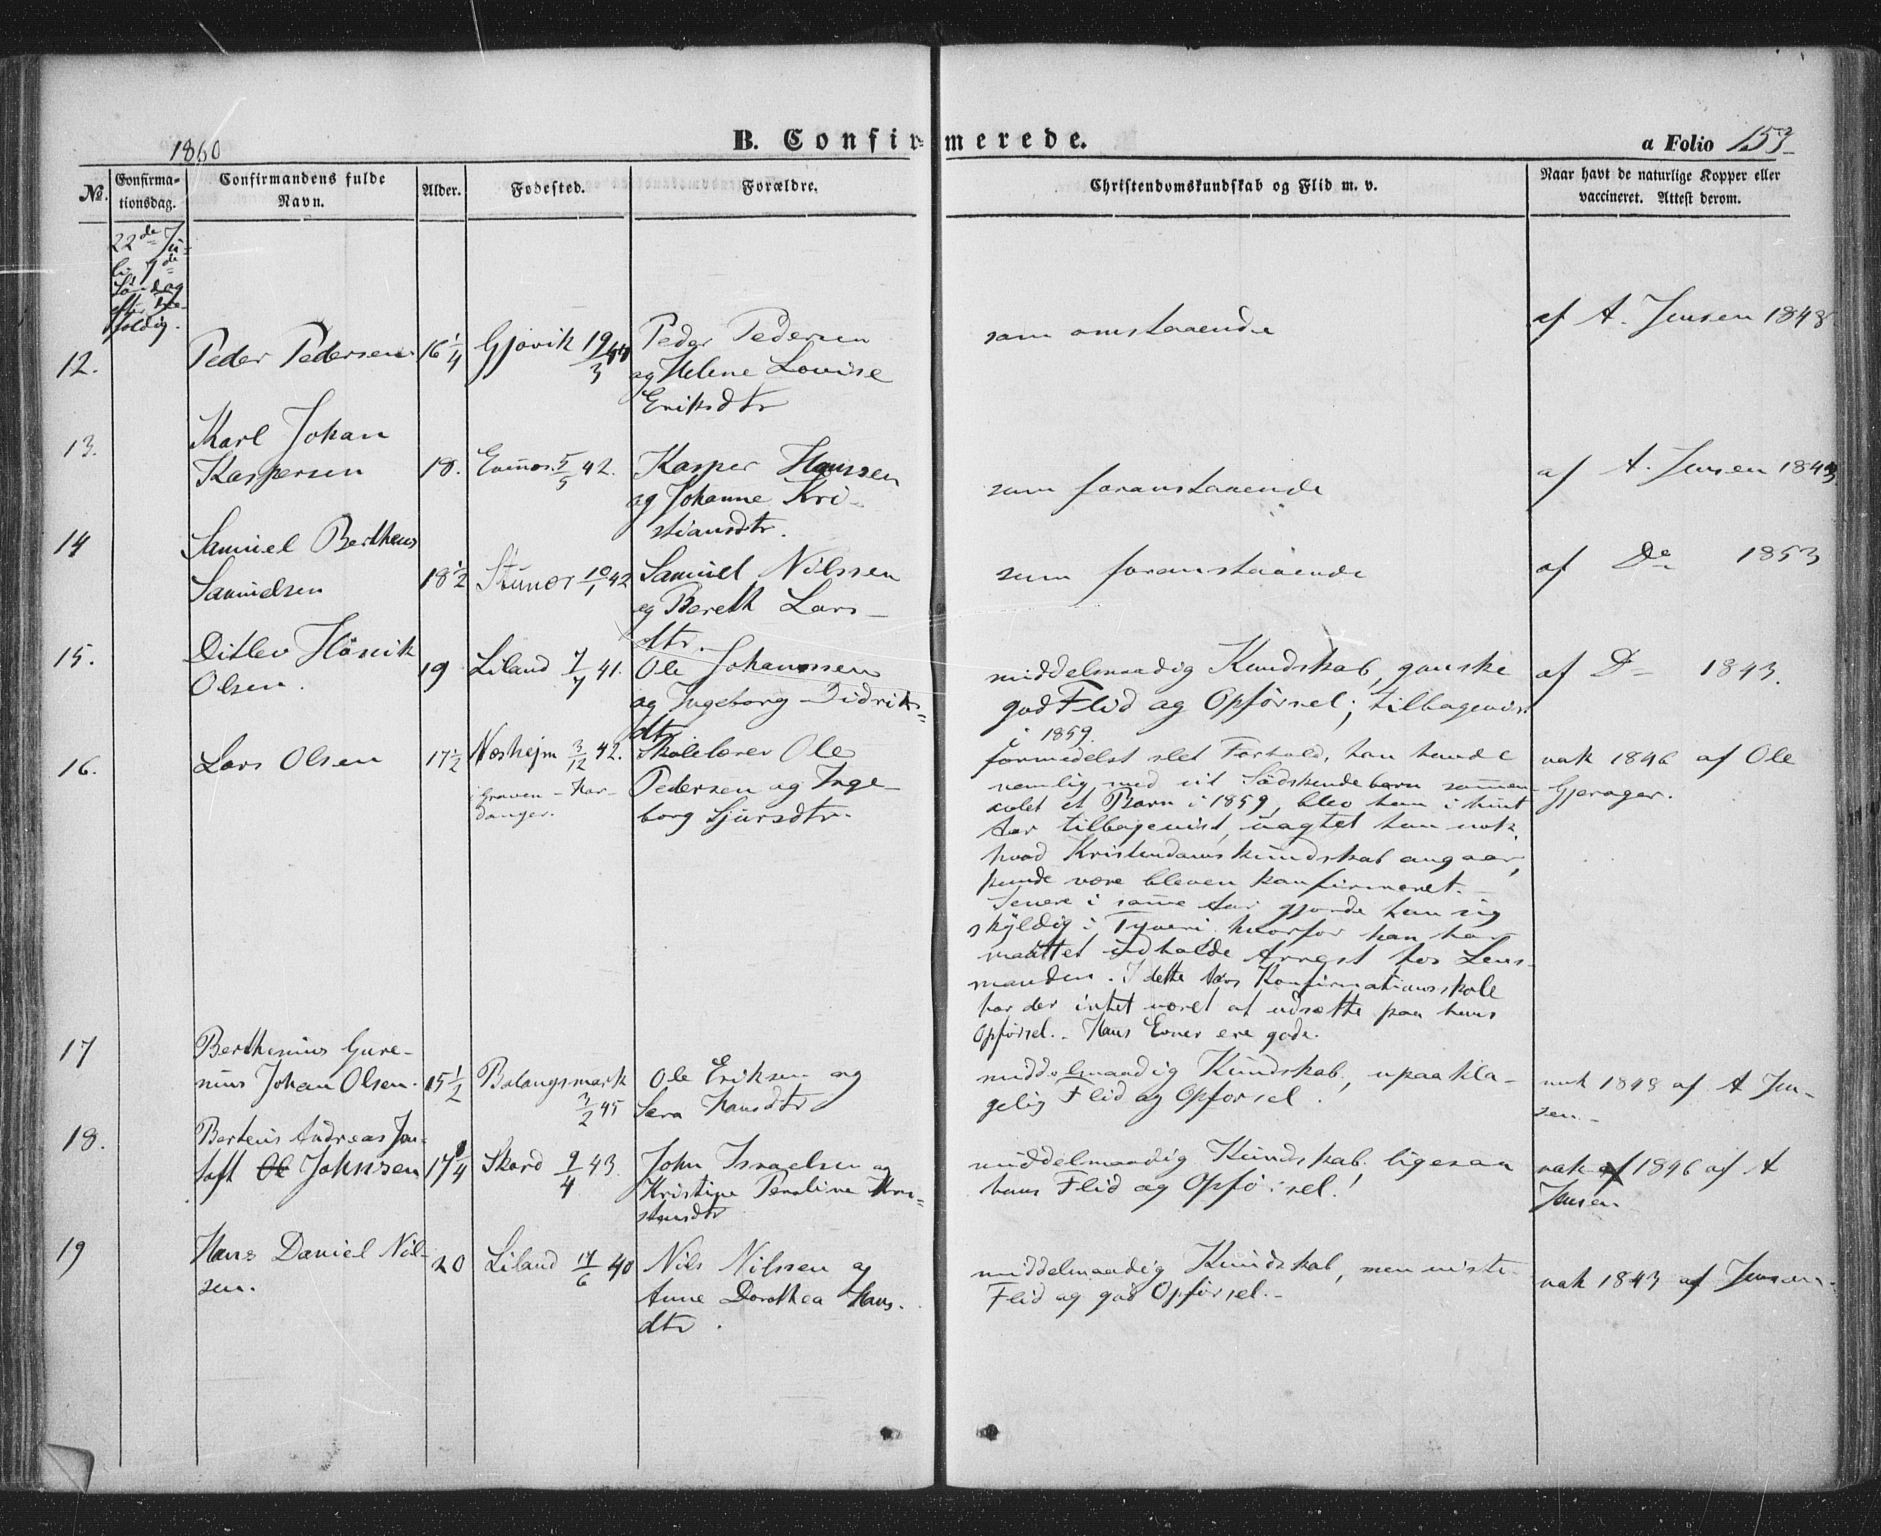 1860
B. Confirmerede.
a Folio 153
No.
Confirmationsdag.
Confirmandens fulde Navn.
Alder.
Fødested.
Forældre.
Christendomskundskab og Flid m. v.
Naar havt de naturlige Kopper eller vaccineret. Attest derom.
22de Ju-
li 7de
Søndag
eftr. Tre-
foldig.
12.
Peder Pedersen
16 1/4
Gjøvik 19/3 44
Peder Pedersen
og Helene Lovise
Eriksdtr
som omstaaende
af A. Jensen 1848
13.
Karl Johan
Kaspersen
18.
Evenes. 5/5 42.
Kasper Hanssen
og Johanne Kri-
stiansdtr.
som foranstaaende
af A. Jensen 1843
14
Samuel Bertheus
Samuelsen
18 1/2
10/1 42
Samuel Nilssen
og Bereth Lars-
dtr.
som foranstaaende
af Do 1853
15.
Ditlev Håvik
Olsen.
19
Liland 7/7 41.
Ole Johannssen
og Ingeborg Didriks-
dtr
middelmaadig Kundskab, ganske
god Flid og Opførsel; tilbagevist
i 1859.
af Do 1843.
16.
Lars Olsen
17 1/2
Næshejm 3/12 42.
i Graven - Har-
danger.
Skolelærer Ole
Pedersen og Inge-
borg Sjursdtr.
formedelst slet Forhold, han havde
nemlig med sit Södskendebarn sammen
avlet et Barn i 1859, blev han i hint
Aar tilbagevist, uagtet han nok,
hvad Kristendomskundskab angaar,
kunde være bleven konfirmeret.
Senere i samme Aar gjorde han sig
skyldig i Tyveri hvorfor han har
maattet udholde Arrest hos Lens-
manden. I dette Aars Konfirmationsskole
har der intet været at udsætte paa hans
Opførsel. Hans Evner ere gode.
vak 1846 af Ole
Gjerager.
17
Berthinius Gure-
nius Johan Olsen.
15 1/2
Balangsmark
3/2 45
Ole Eriksen og
Sara Hansdtr
middelmaadig Kundskab, upaakla-
gelig Flid og Opførsel.
vak 1848 af A Jen-
sen.
18.
Berteus Andreas Jen-
toft Ol Johnsen
17 1/4
Skard 9/4 43.
John Israelsen og
Kristine Peroline Kri-
stensdtr
middelmaadig Kundskab. ligesaa
hans Flid og Opførsel!
vak af 1846 af A
Jensen
19
Hans Daniel Nil-
sen.
20
Liland 17/6 40
Nils Nilssen og
Anne Dorothea Hans-
dtr.
middelmaadig Kundskab, men
Flid og god Opførsel.
vak 1843 af Jensen.